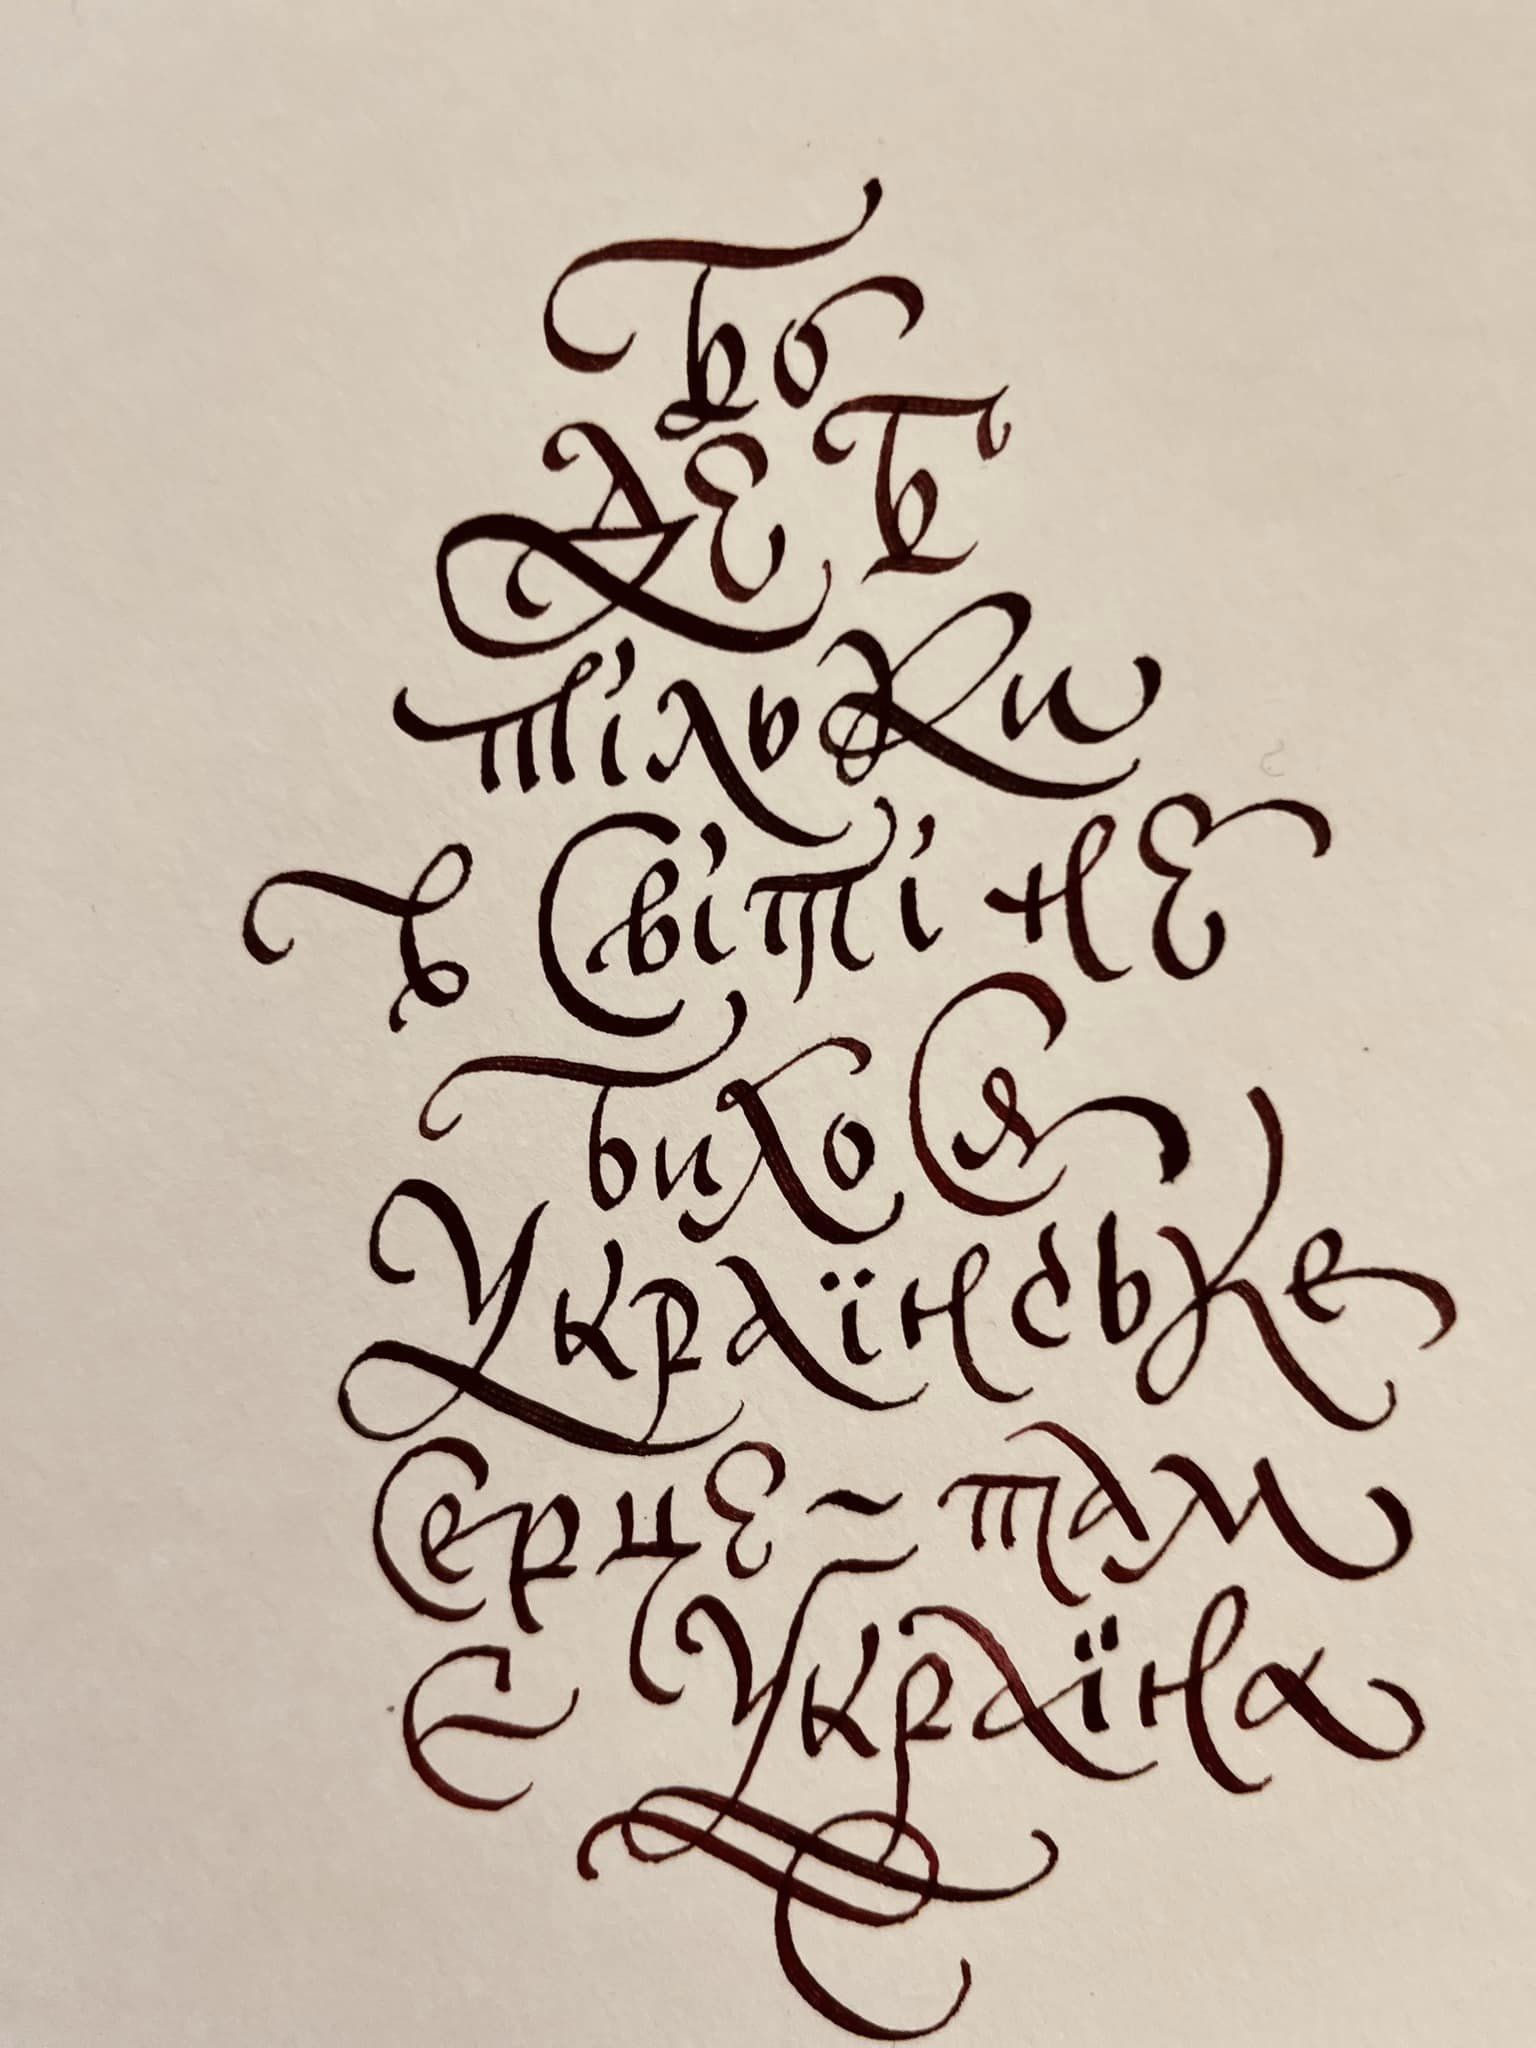 Бо
де б
тільки
в світі не
билося
Українське
серце – там
є Україна